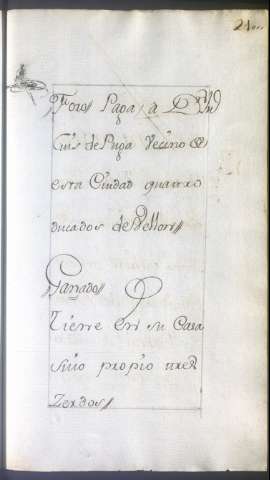 21
Foros Paga, a Dn
Luis de Puga Vecino de
esta Ciudad quatro
ducados de Vellon
Ganado
Tiene en su Casa
suio propio tres
Zerdos